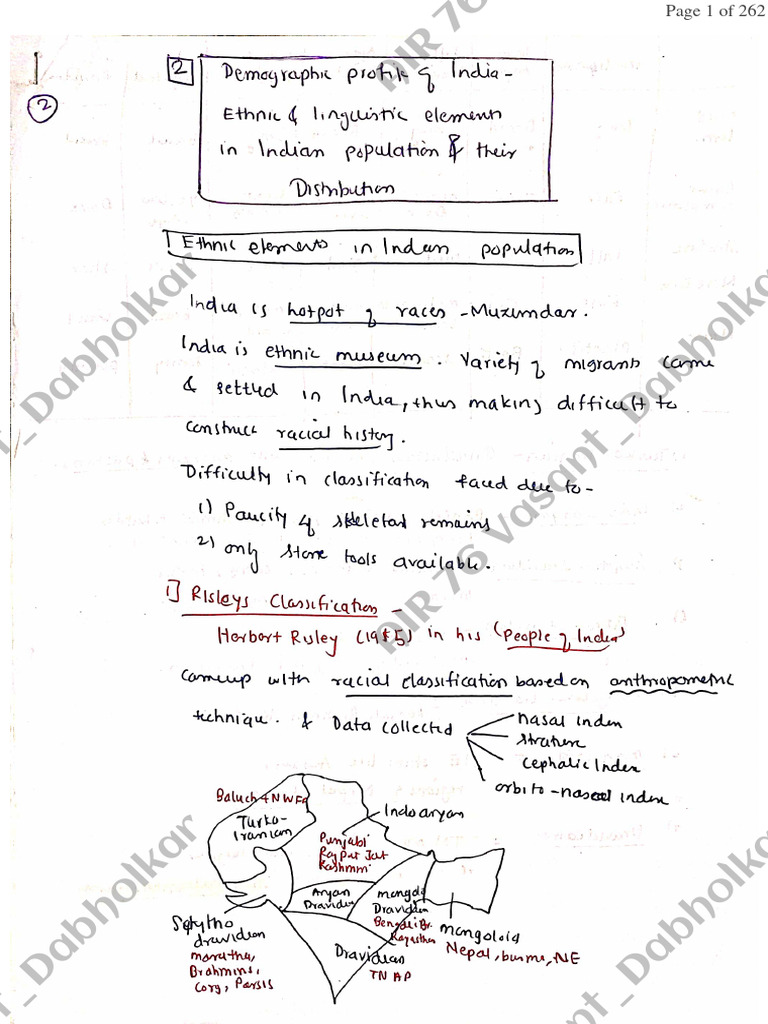 Page 1 of 262
2
2
Demographic profile of India -
Ethnic & linguistic elements
in Indian population & their
Distribution
Ethnic elements in Indian population
India is hotpot of races - Muzumdar.
India is ethnic museum. Variety of migrants came
& settled in India, thus making difficult to
construct racial history.
Difficulty in classification faced due to-
1) Paucity of skeletal remains
2) only stone tools available.
1] Risleys Classification -
Herbert Risley (1915) in his (People of India)
Cameup with racial classification based on anthropometric
technique. & Data collected
nasal index
strature
cephalic Index
orbito-nasal index
Baluch + NWFP
Turko-
iranian
Indoaryan
Punjabi
Rajput Jat
Kashmiri
Aryan
Dravidian
mongolo
Dravidian
Bengali Br.
Kayasthas
mongoloid
Nepal, burma, NE
Scytho
dravidian
maratha,
Brahmins,
Corg, Parsis
Dravidian
TN AP
AIR 76 Vasant_Dabholkar